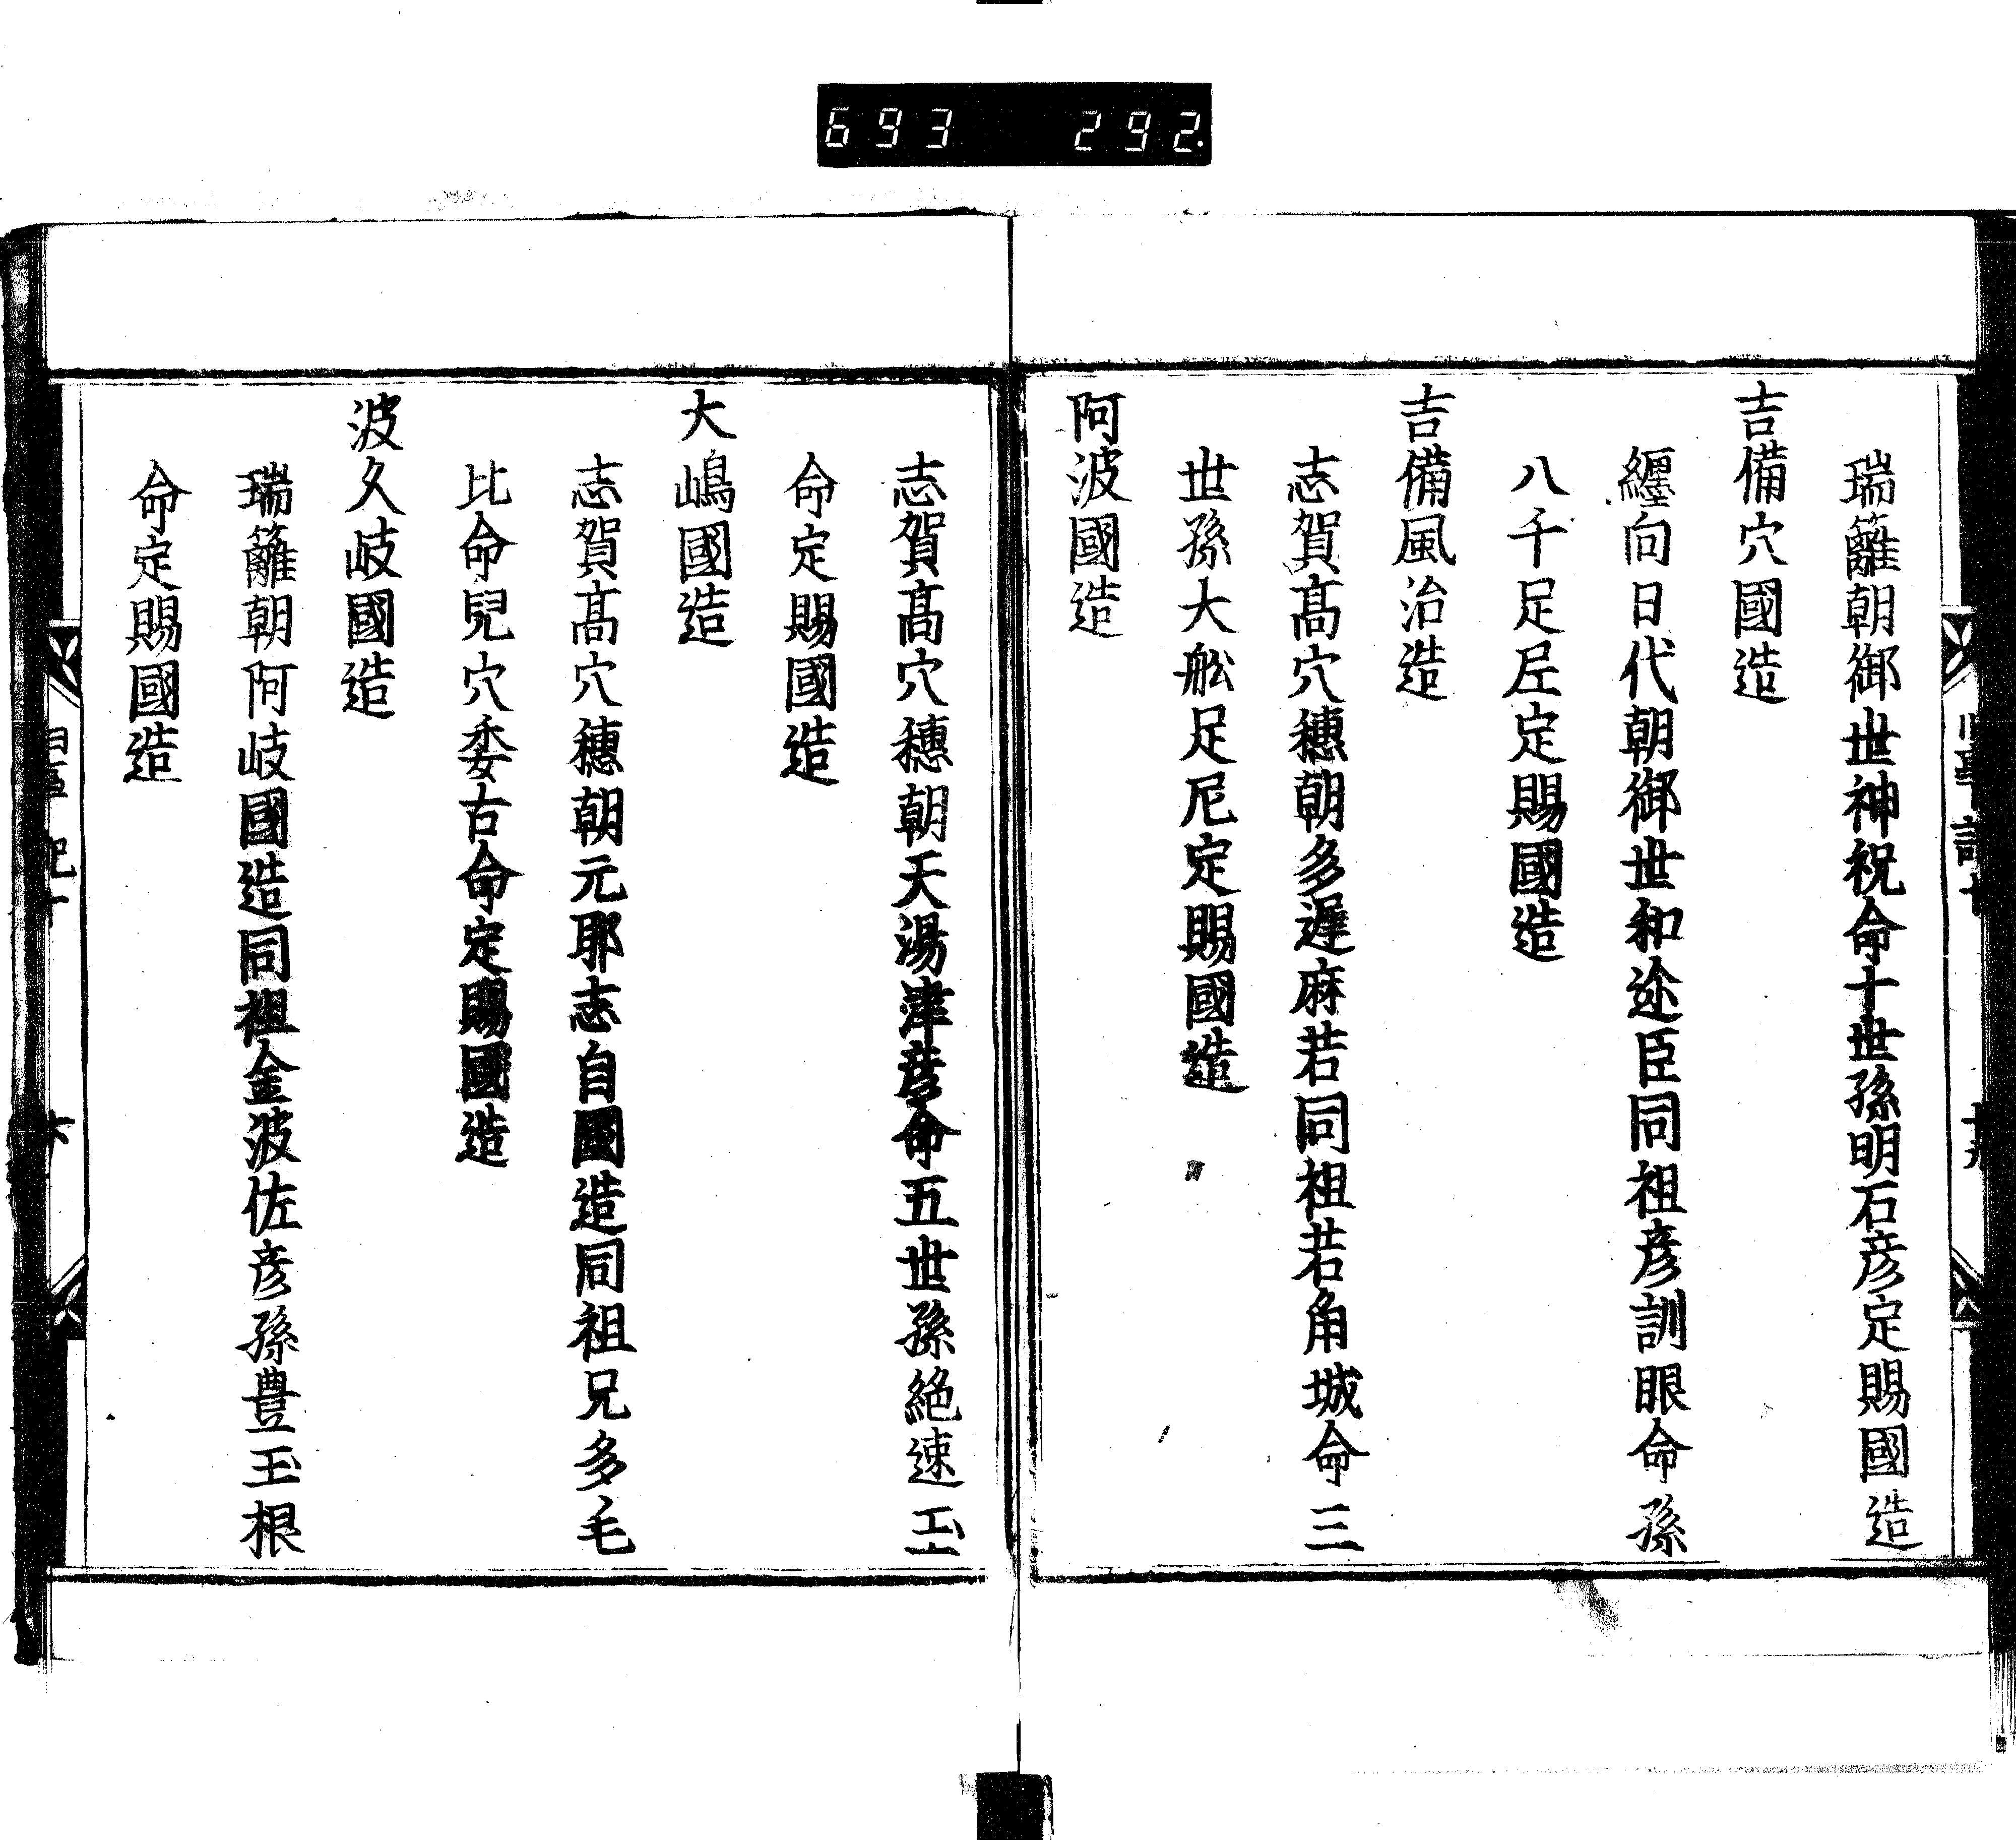 693 292.
瑞籬朝御世神祝命十世孫明石彦定賜國造
吉備穴國造
纒向日代朝御世和迩臣同祖彦訓眼命孫
八千足尼定賜國造
吉備風治造
志賀髙穴穗朝多遲麻若同祖若角城命三
世孫大舩足尼定賜國造
阿波國造
志賀髙穴穗朝天湯津彦命五世孫絶速玉
命定賜國造
大嶋國造
志賀髙穴穗朝元耶志自國造同祖兄多毛
比命兒穴委古命定賜國造
波久岐國造
瑞籬朝阿岐國造同祖金波佐彦孫豊玉根
命定賜國造